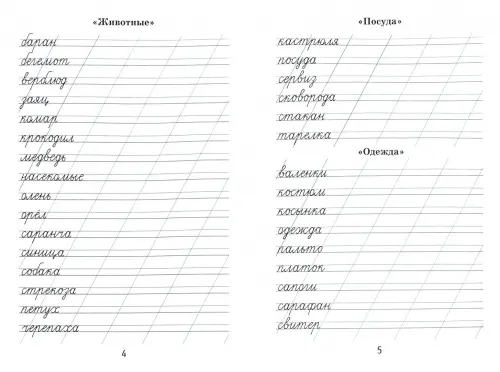 «Животные»
баран
бегемот
верблюд
заяц
комар
крокодил
медведь
насекомые
олень
орёл
саранча
синица
собака
стрекоза
петух
черепаха
4
«Посуда»
кастрюля
посуда
сервиз
сковорода
стакан
тарелка
«Одежда»
валенки
костюм
косынка
одежда
пальто
платок
сапоги
сарафан
свитер
5